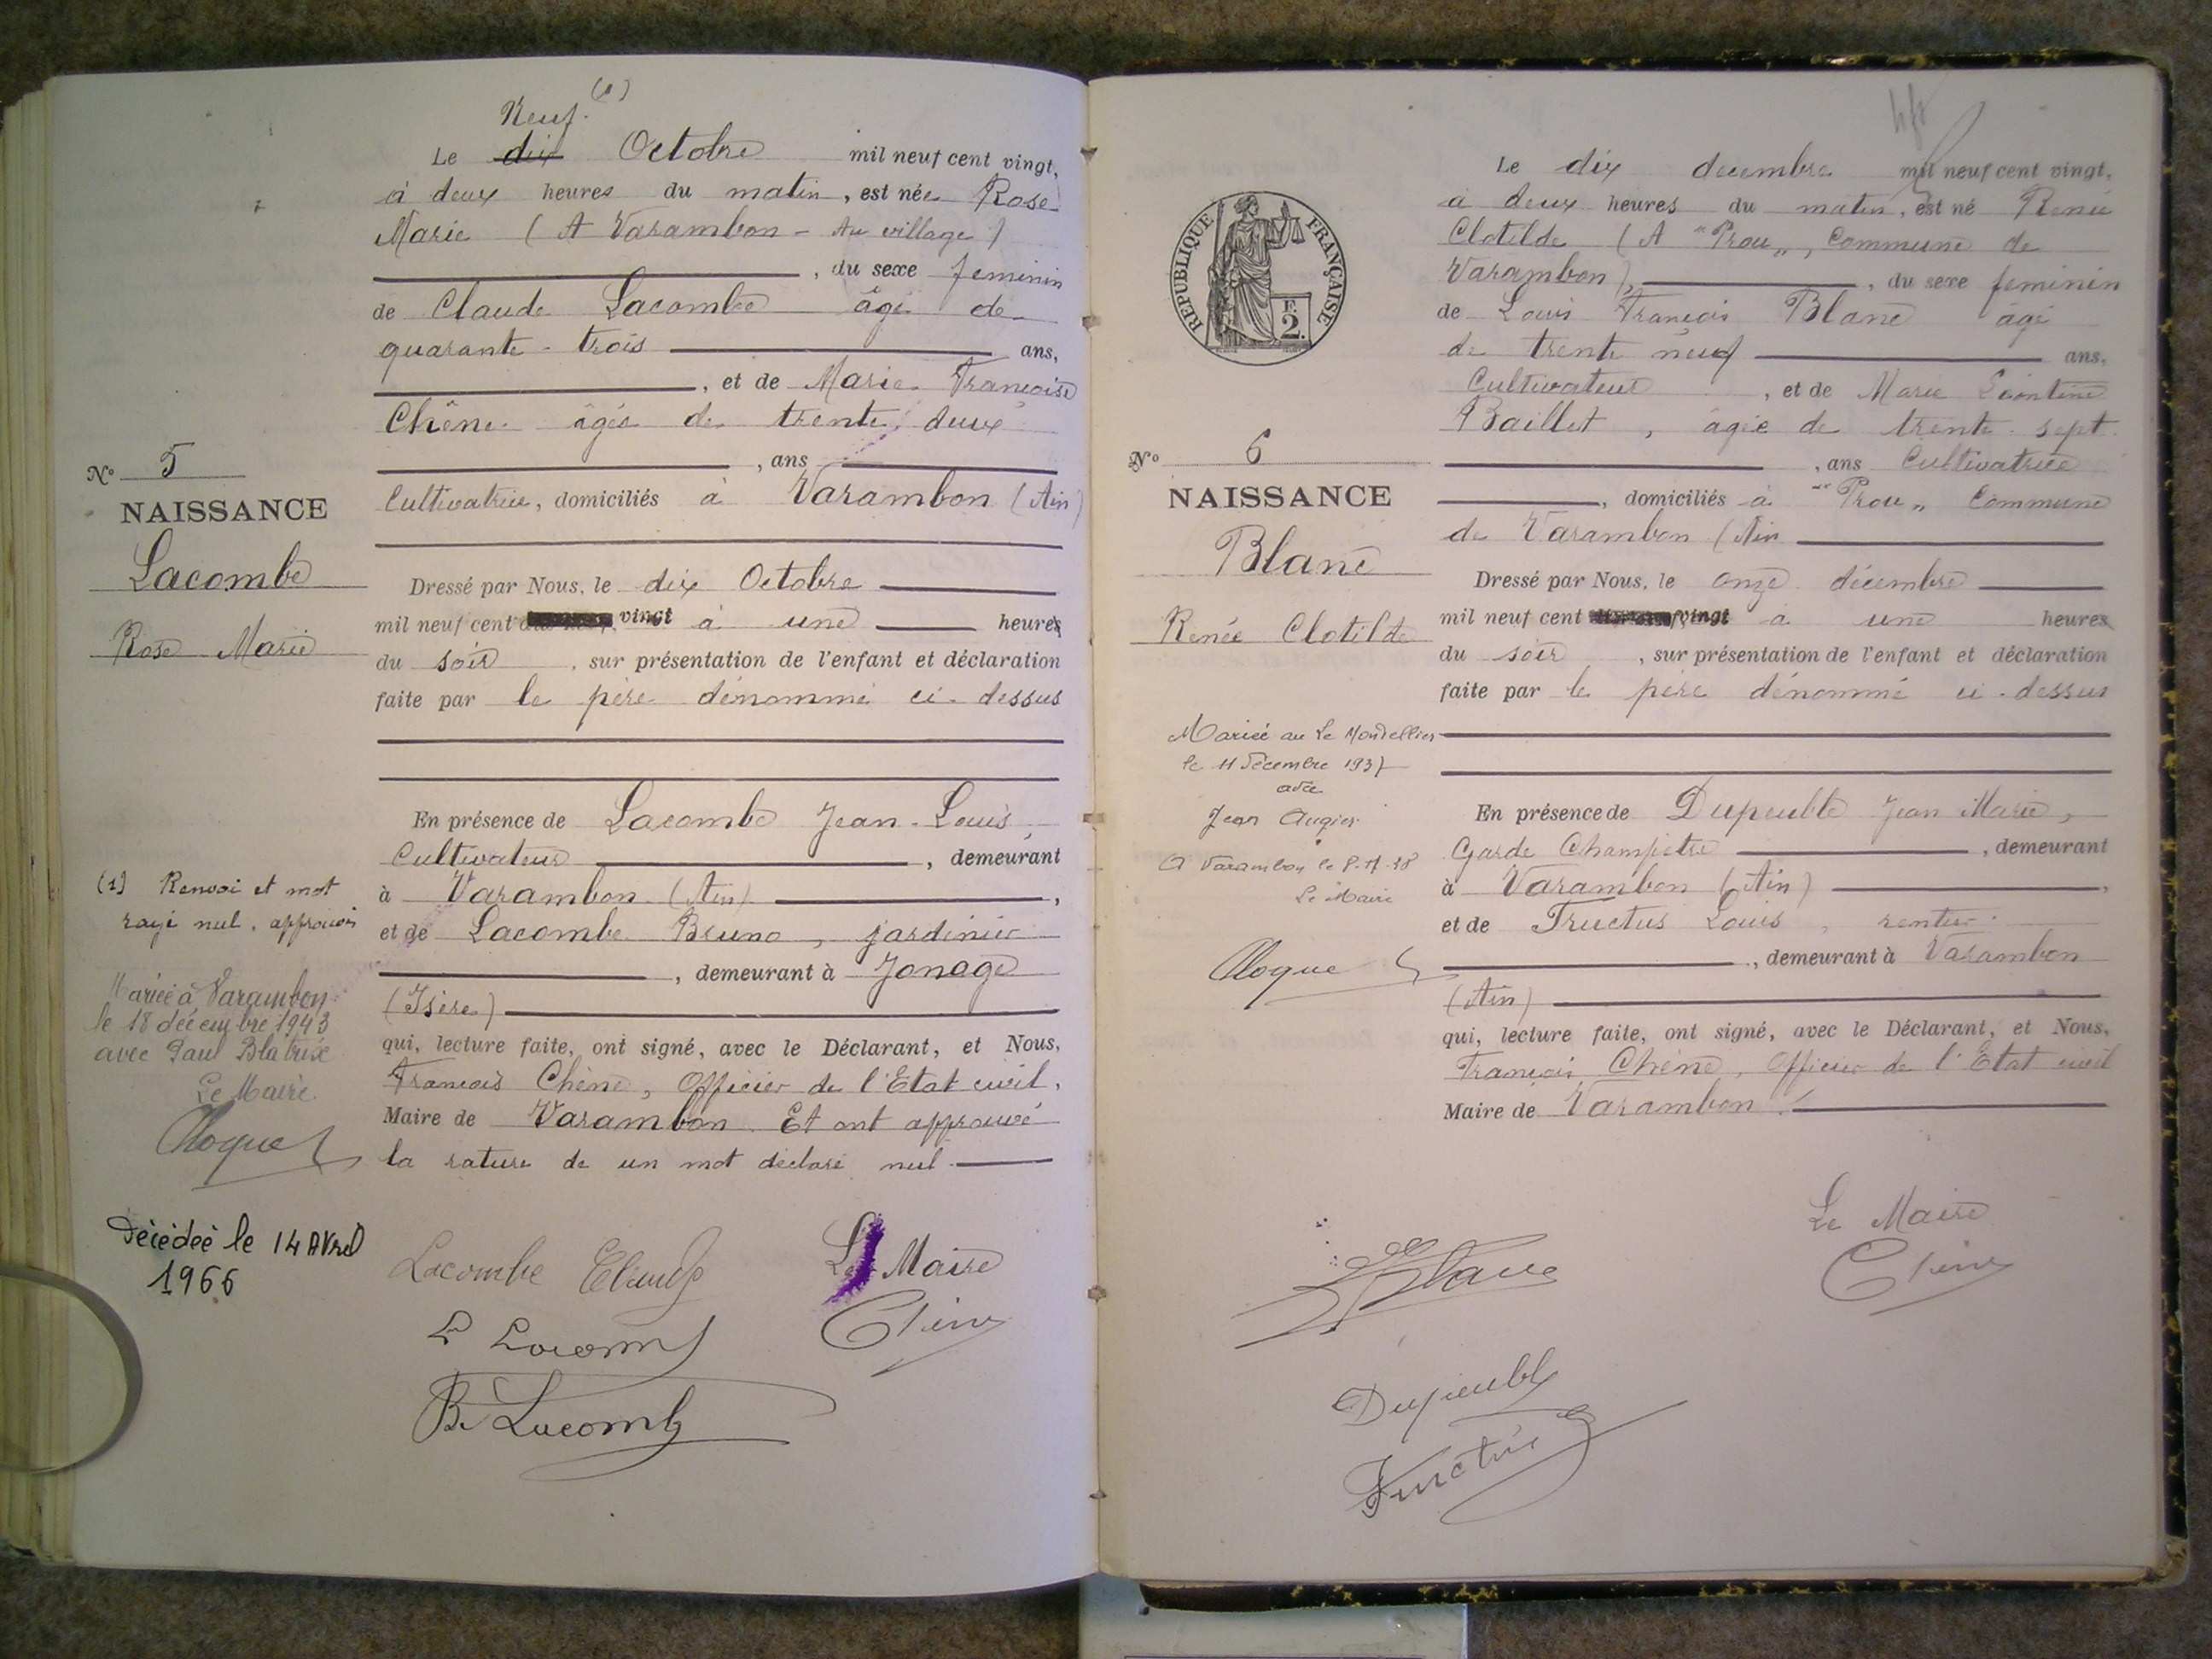 Neuf. (1)
Le dix Octobre mil neuf cent vingt,
à deux heures du matin, est née Rose
Marie (A Varambon - Au village)
, du sexe feminin
de Claude Lacombe âgé de
quarante-trois ans,
, et de Marie Francoise
Chêne âgée de trente deux
, ans
Cultivatrice, domiciliés à Varambon (Ain)
Dressé par Nous, le dix Octobre
mil neuf cent vingt à une heures
du soir, sur présentation de l'enfant et déclaration
faite par le père dénommé ci-dessus
En présence de Lacombe Jean-Louis,
Cultivateur, demeurant
à Varambon (Ain),
et de Lacombe Bruno, jardinier
, demeurant à Jonage
(Isère)
qui, lecture faite, ont signé, avec le Déclarant, et Nous,
Francois Chêne, Officier de l'Etat civil,
Maire de Varambon. Et ont approuvé
la rature de un mot déclaré nul
Lacombe Claude
Le Maire
L Lacomb
Chêne
B. Lacomb
No 5
NAISSANCE
Lacombe
Rose Marie
(1) Renvoi et mot
rayé nul, approuvés
Mariée à Varambon
le 18 décembre 1943
avec Paul Blatrix
Le Maire
Décédée le 14 Avril
1966
Le dix decembre mil neuf cent vingt,
à deux heures du matin, est né Renée
Clotilde (A "Prou", Commune de
Varambon), du sexe feminin
de Louis François Blanc âgé
de trente neuf ans,
Cultivateur, et de Marie Léontine
Baillet, âgée de trente-sept
, ans Cultivatrice
, domiciliés à "Prou" Commune
de Varambon (Ain
Dressé par Nous, le onze décembre
mil neuf cent vingt à une heures
du soir, sur présentation de l'enfant et déclaration
faite par le père dénommé ci-dessus
En présence de Dupeuble Jean Marie,
Garde Champêtre, demeurant
à Varambon (Ain),
et de Fructus Louis, rentier
, demeurant à Varambon
(Ain)
qui, lecture faite, ont signé, avec le Déclarant, et Nous,
François Chêne, Officier de l'Etat civil
Maire de Varambon.
Le Maire
Chêne
Blanc
Dupeuble
Fructus
RÉPUBLIQUE FRANÇAISE
F.
2.
No 6
NAISSANCE
Blanc
Renée Clotilde
Mariée au Le Montellier
le 11 décembre 1937
avec
Jean Augier
A Varambon le
Le Maire